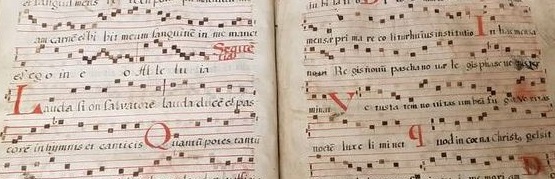 et sanguinem eius
am carnē et bi bit meum sanguinē in me manet
Seque
tia
et e go in e o Al le lu ia
Lauda si on salvatorē lauda ducē et pas
torē in hymnis et canticis Quantū potes tantū
mensæ pri ma re co litur huius institutio In hac mensa
novi Re gis novū pascha no uæ le gis phase
minat Ve tusta tem no vitas umbrā fu gat ve ritas
noctē lux e li mi nat quod in coena Christ9 gessit